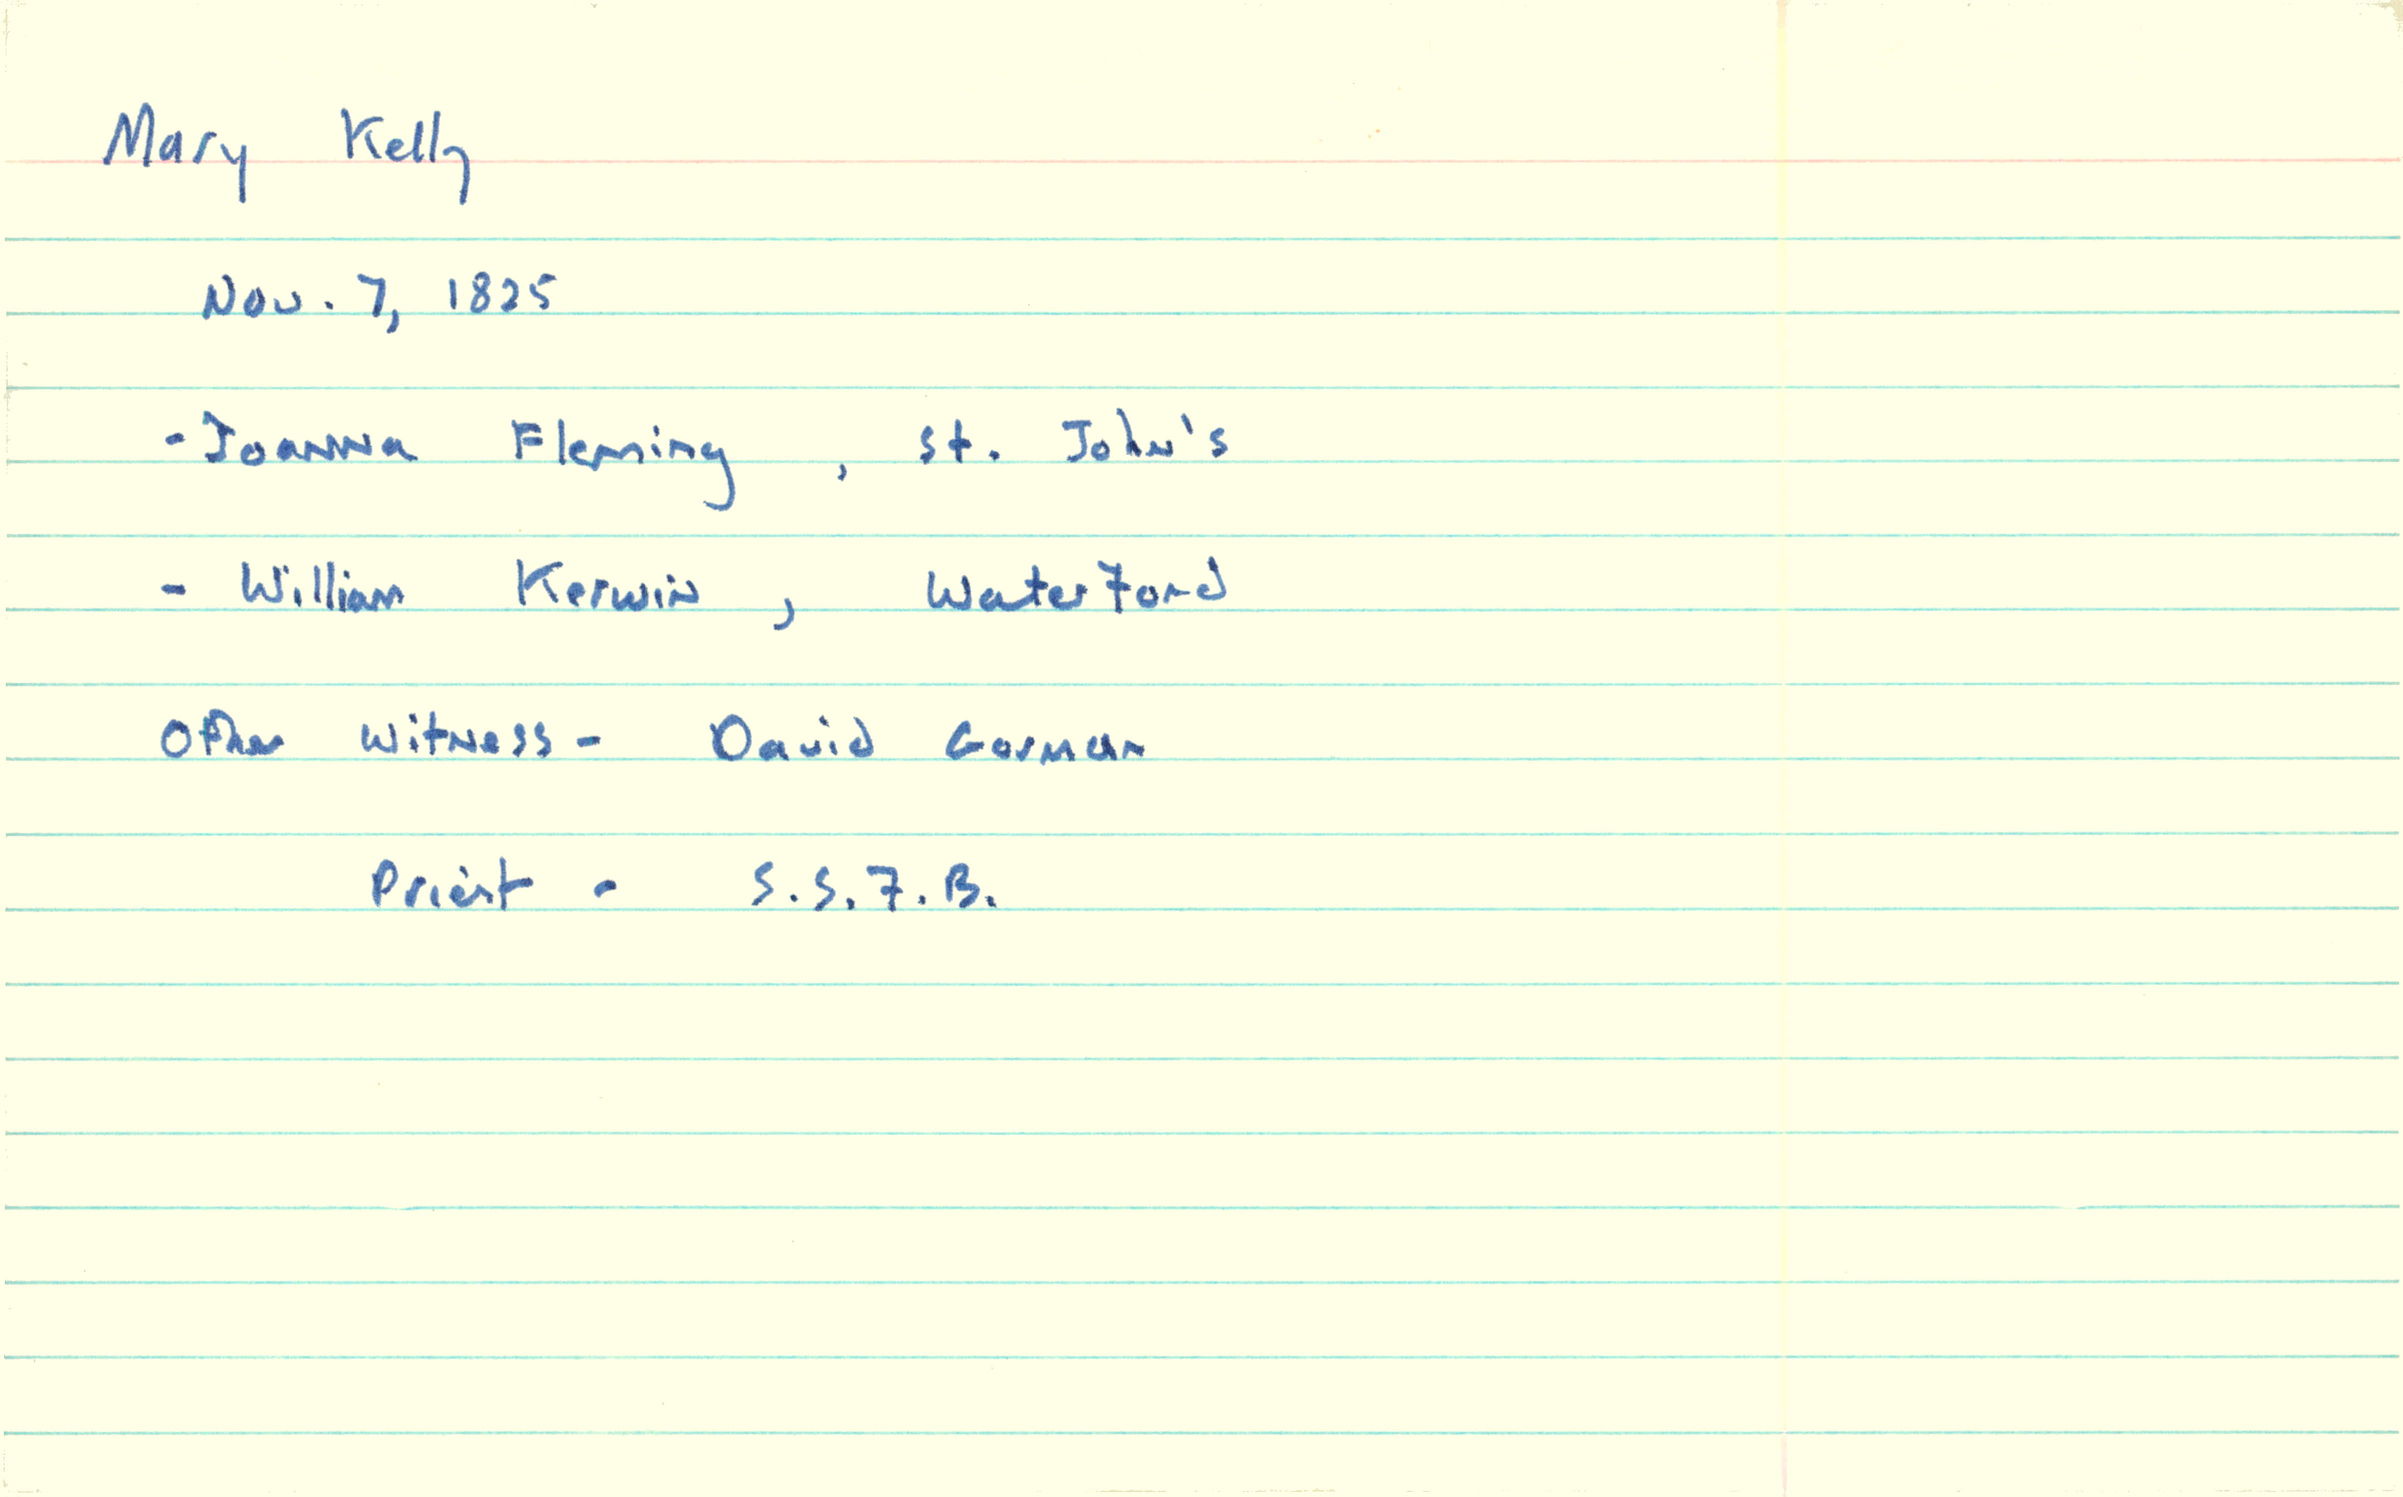 Mary Kelly
Nov. 7, 1825
- Joanna Fleming, St. John's
- William Kerwin, Waterford
Other Witness - David Gorman
Priest - S.S.F.B.